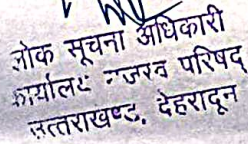 लोक सूचना अधिकारी
कार्यालय राजस्व परिषद
उत्तराखण्ड, देहरादून